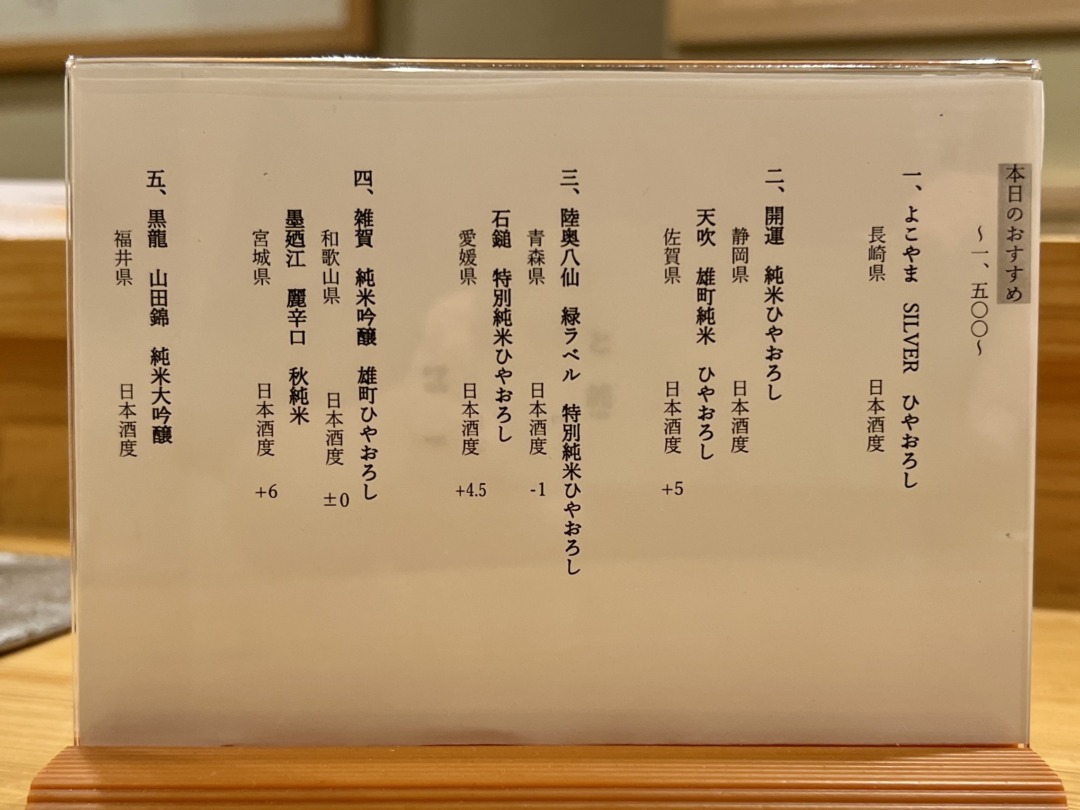 本日のおすすめ
〜一、五〇〇〜
一、よこやま SILVER ひやおろし
長崎県 日本酒度
二、開運 純米ひやおろし
静岡県 日本酒度
天吹 雄町純米 ひやおろし
佐賀県 日本酒度 +5
三、陸奥八仙 緑ラベル 特別純米ひやおろし
青森県 日本酒度 -1
石鎚 特別純米ひやおろし
愛媛県 日本酒度 +4.5
四、雑賀 純米吟醸 雄町ひやおろし
和歌山県 日本酒度 ±0
墨廼江 麗辛口 秋純米
宮城県 日本酒度 +6
五、黒龍 山田錦 純米大吟醸
福井県 日本酒度